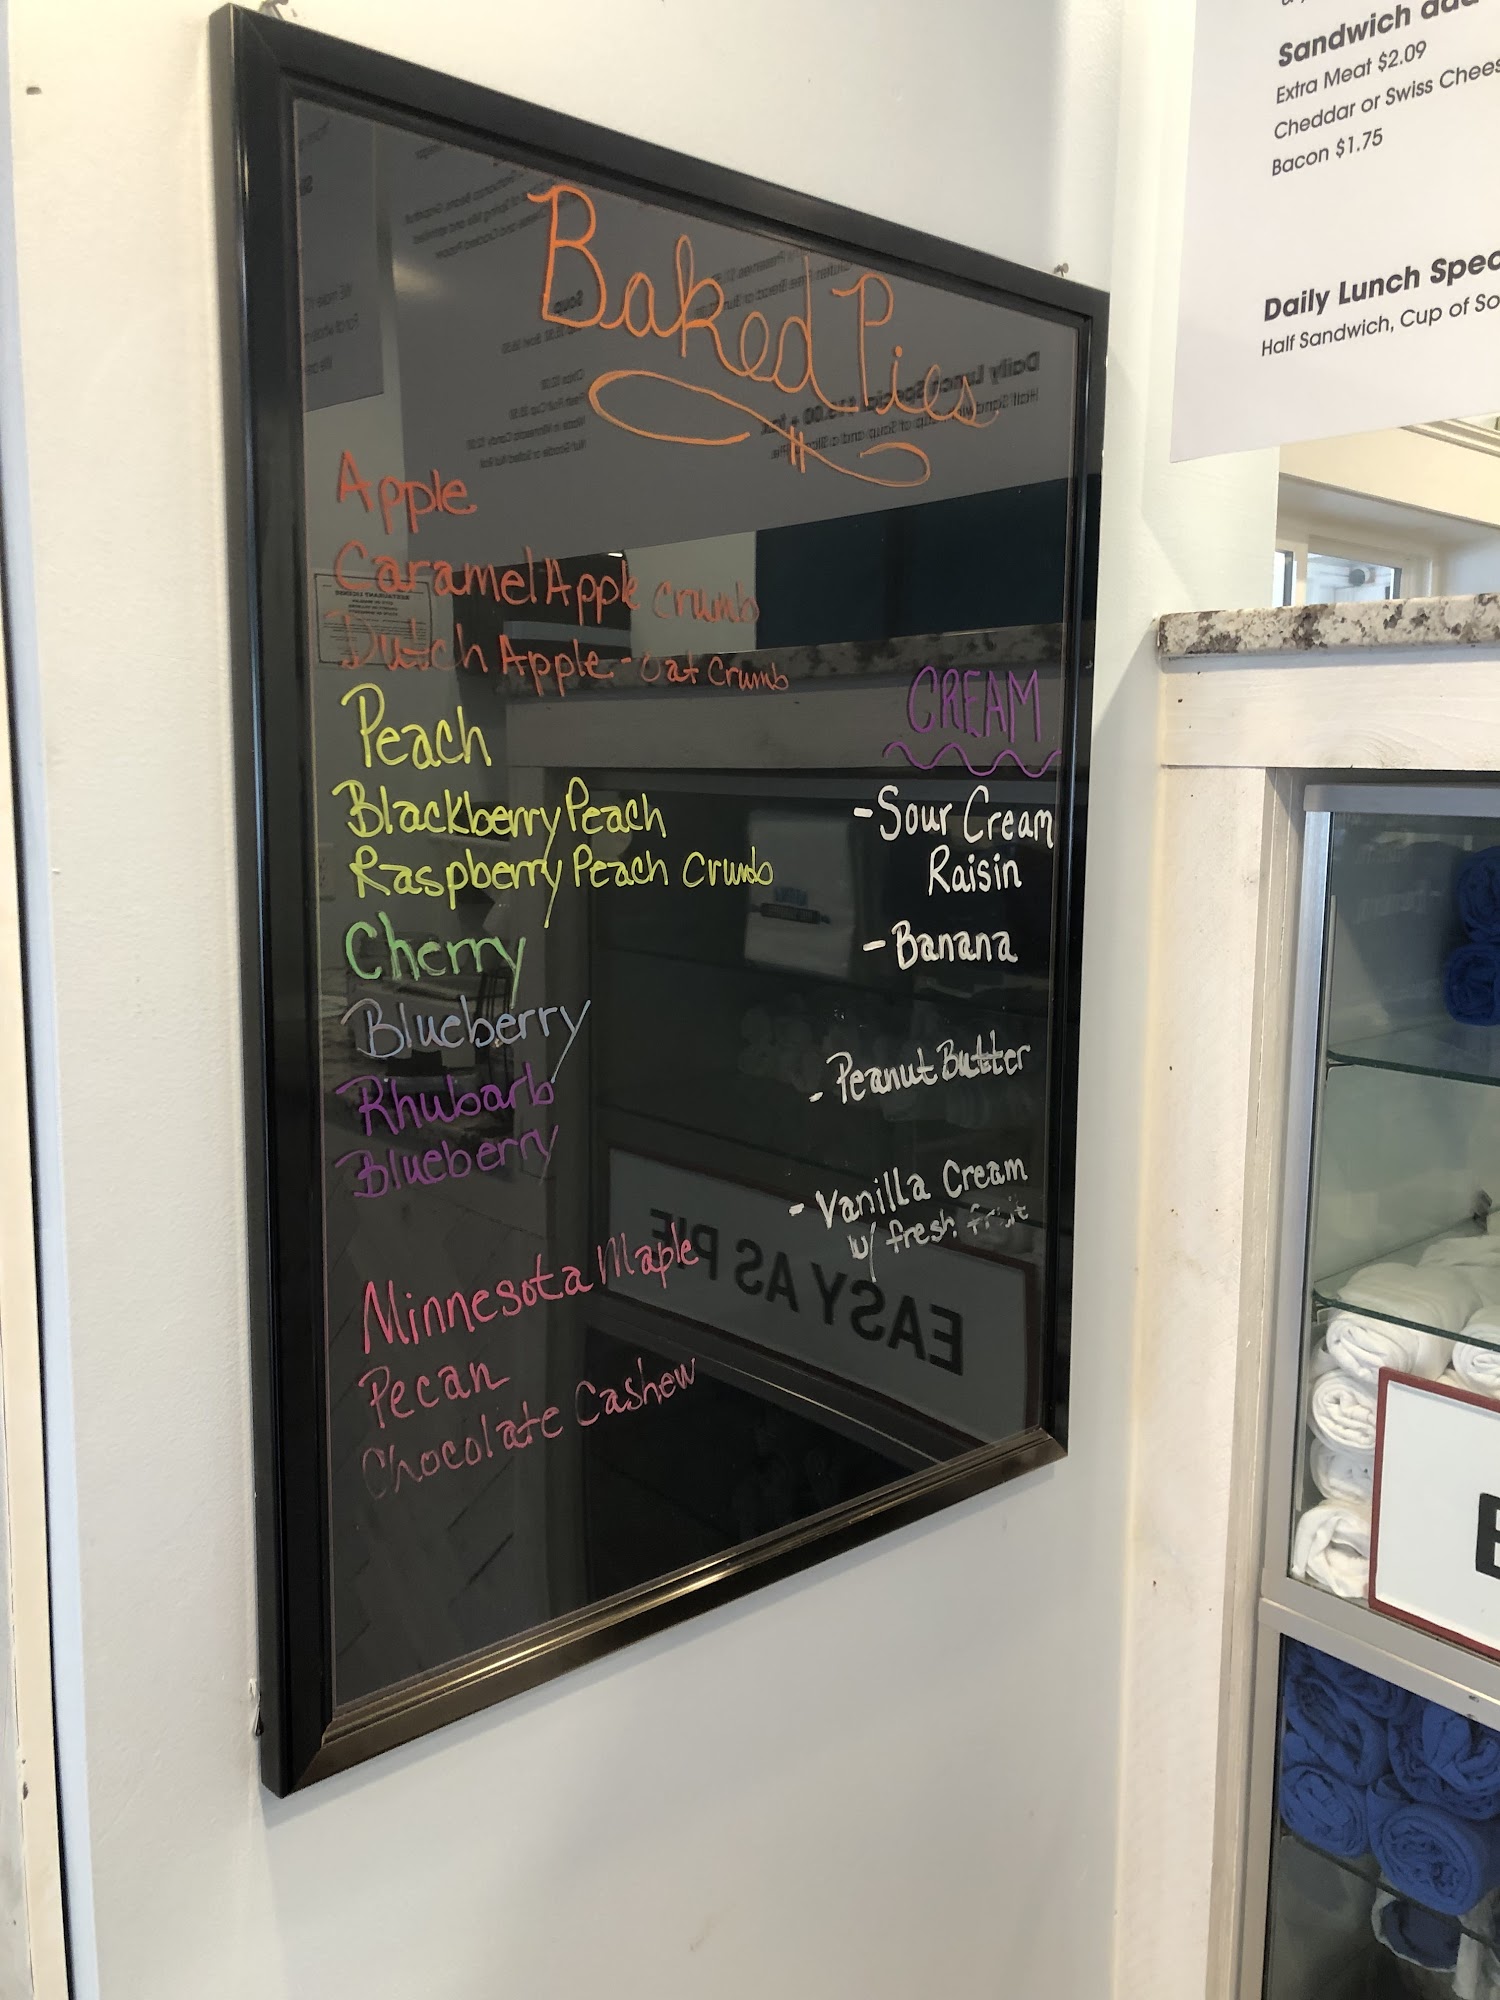 Baked Pies
Apple
Caramel Apple crumb
Dutch Apple - Oat crumb
Peach
Blackberry Peach
Raspberry Peach crumb
Cherry
Blueberry
Rhubarb
Blueberry
Minnesota Maple
Pecan
Chocolate Cashew
CREAM
- Sour Cream
Raisin
- Banana
- Peanut Butter
- Vanilla Cream
w/ fresh fruit
EASY AS PIE
Sandwich
Extra Meat $2.09
Cheddar or Swiss
Bacon $1.75
Daily Lunch
Half Sandwich, Cup of